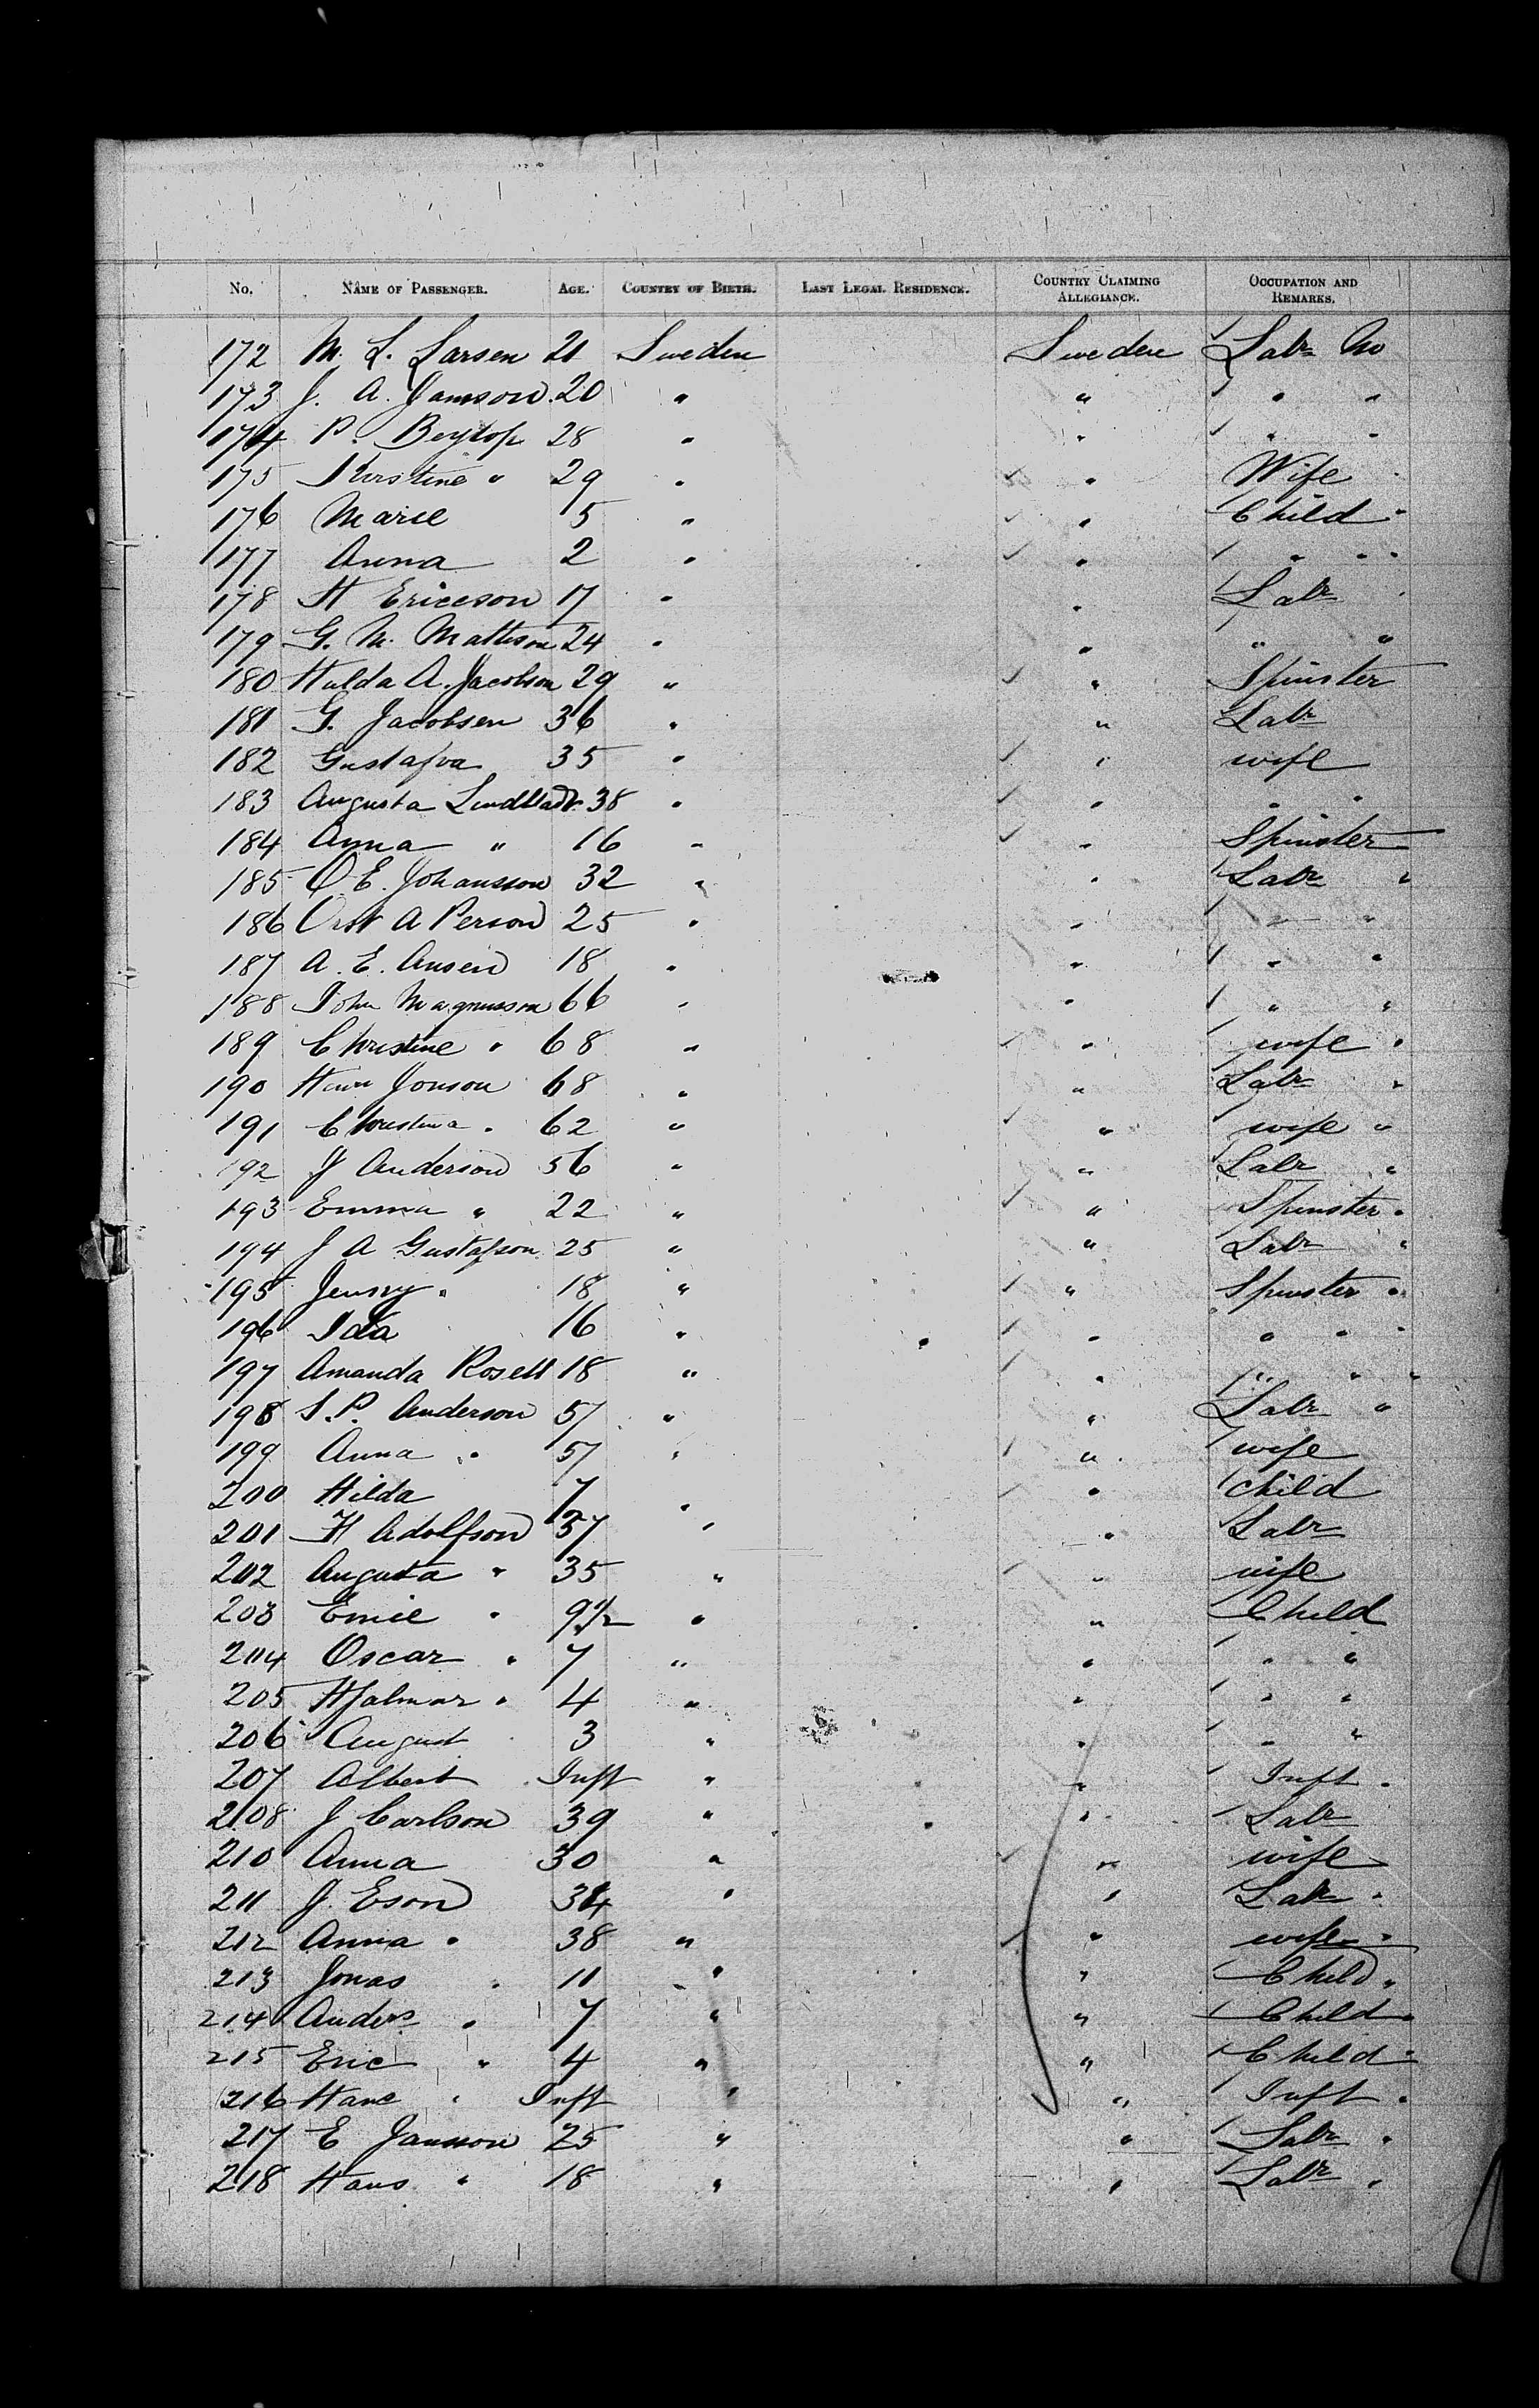 No. NAME OF PASSENGER. AGE. COUNTRY OF BIRTH. LAST LEGAL RESIDENCE. COUNTRY CLAIMING ALLEGIANCE. OCCUPATION AND REMARKS.
172 M. L. Larsen 21 Sweden Sweden Labr
173 J. A. Jamson 20 " " " "
174 P. 28 " " " "
175 Kirstine " 29 " " Wife
176 Marie 5 " " Child "
177 Anna 2 " " " "
178 H Ericeson 17 " " Labr "
179 G. M. Mattison 24 " " " "
180 Hulda A. Jacobson 29 " " Spinster
181 G. Jacobsen 36 " " Labr
182 Gustafva 35 " " wife
183 Augusta Lindblad 38 " " " "
184 Anna " 16 " " Spinster
185 O. E. Johansson 32 " " Labr "
186 A Person 25 " " " "
187 A. E. Ansen 18 " " " "
188 John Magnusson 66 " " " "
189 Christine " 68 " " wife "
190 Jonson 68 " " Labr "
191 Christina " 62 " " wife "
192 J Anderson 56 " " Labr "
193 Emma " 22 " " Spinster "
194 J A Gustafson 25 " " Labr "
195 Jenny " 18 " " Spinster "
196 Ida 16 " " " " "
197 Amanda Rosell 18 " " " " "
198 S. P. Anderson 57 " " Labr "
199 Anna " 57 " " wife
200 Hilda 7 " " child
201 H Adolfson 37 " " Labr
202 Augusta " 35 " " wife
203 Emil " 9½ " " Child
204 Oscar " 7 " " " "
205 Hjalmar " 4 " " " "
206 August 3 " " " "
207 Albert Inft " " Inft "
208 J Carlson 39 " " Labr
210 Anna 30 " " wife
211 J. Eson 34 " " Labr "
212 Anna " 38 " " wife "
213 Jonas " 11 " " Child "
214 Anders " 7 " " Child "
215 Eric " 4 " " Child "
216 Hans " Inft " " Inft "
217 E Jansson 25 " " Labr "
218 Hans " 18 " " Labr "